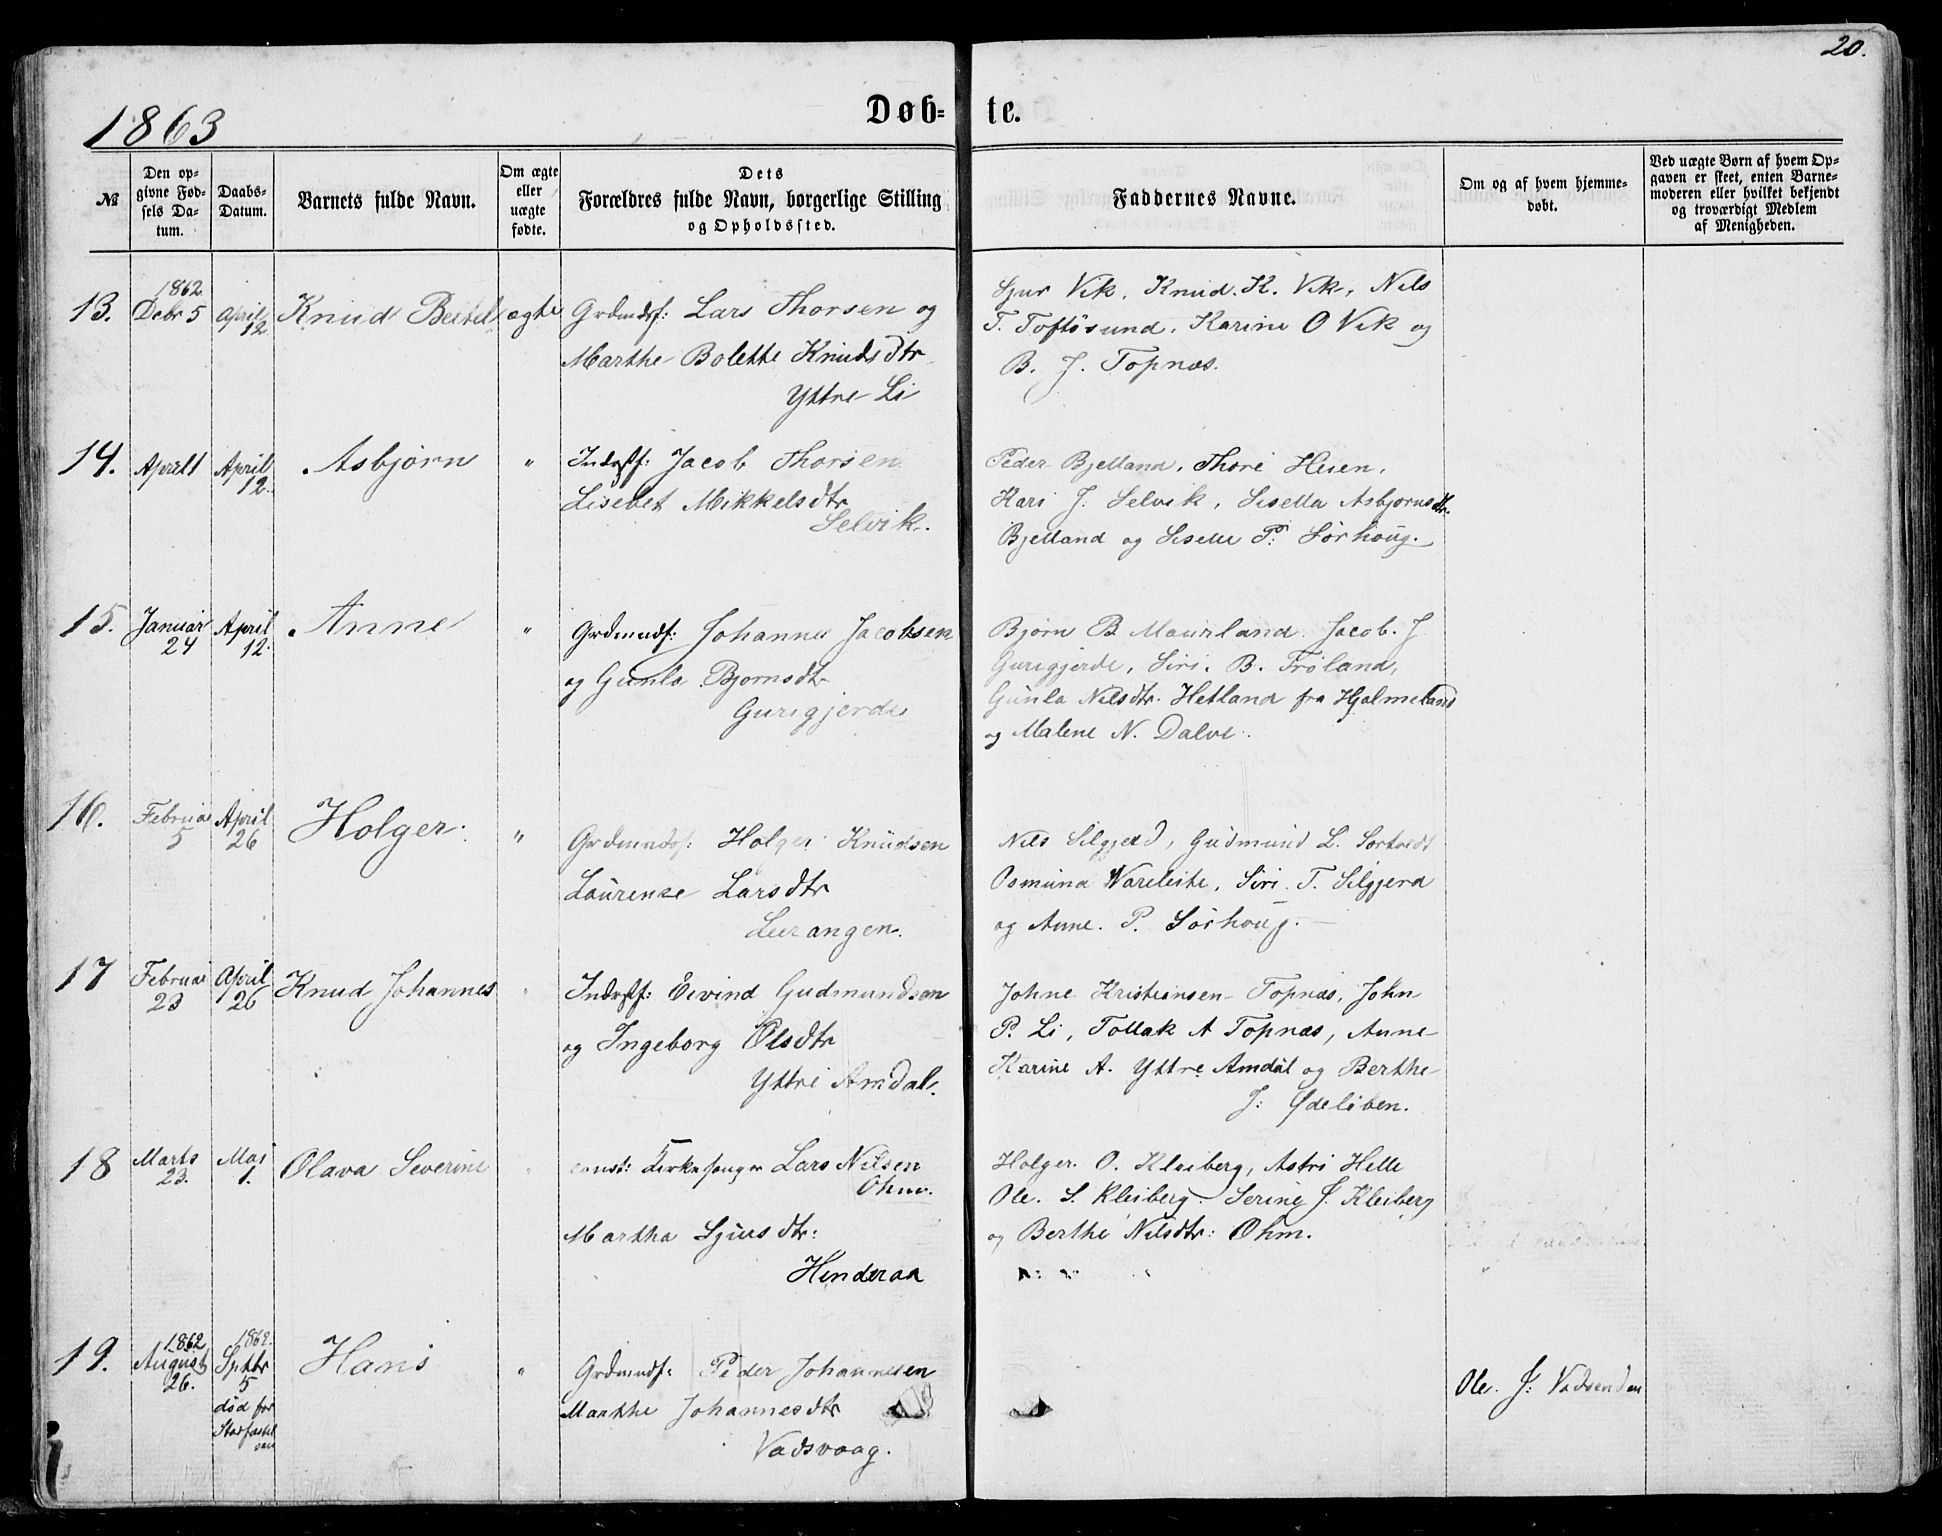 20.
1863
Døb- te.
№
Den op-
givne Fød-
sels Da-
tum.
Daabs-
Datum.
Barnets fulde Navn.
Om ægte
eller
uægte
fødte.
Dets
Forældres fulde Navn, borgerlige Stilling
og Opholdssted.
Faddernes Navne.
Om og af hvem hjemme-
døbt.
Ved uægte Børn af hvem Op-
gaven er skeet, enten Barne-
moderen eller hvilket bekjendt
og troværdigt Medlem
af Menigheden.
13.
1862
Debr 5
April
12
Knud Bertel
ægte
Grdmdsf: Lars Thorsen og
Marthe Bolette Knudsdtr
Yttre Li
Sjur Vik, Knud. K. Vik, Nils
T. Toftøsund, Karine O Vik og
B. J. Topnæs.
14.
April 1
April
12.
Asbjørn
"
Indrstf: Jacob Thorsen
Lisebet Mikkelsdtr
Selvik.
Peder Bjelland, Thore Heien,
Kari J. Selvik, Sisella Asbjørnsdtr.
Bjelland og Siselle P: Sørhoug.
15.
Januar
24
April
12.
Anne
"
Grdmndsf: Johannes Jacobsen
og Gunla Bjornsdtr
Gurigjerde
Bjørn B Maurland. Jacob. J
Gurigjerde, Siri. B. Frøland,
Gunla Nilsdtr. Hetland fra Hjelmeland
og Malene N. Dalve.
16.
Februar
5
April
26
Holger.
"
Grdmndsf: Holger Knudsen
Laurense Larsdtr
Leirangen.
Nils Silgjerd, Gudmund L. Sortvedt
Osmund Vareleite, Siri. T. Silgjerd
og Anne. P. Sørhoug.
17
Februar
23
April
26
Knud Johannes
"
Indrstf: Eivind Gudmundsen
og Ingeborg Olsdtr
Yttre Amdal.
Johne Kristiansen Topnæs, John
P. Li, Tollak A Topnæs, Anne
Karine A. Yttre Amdal og Berthe
J: Ødeløben.
18
Marts
23.
Mai
1.
Olava Severine
"
const: Kirkesanger Lars Nilsen
Ohm.
Martha Sjursdtr:
Hinderaa
Holger. O. Kleiberg, Astri Helle
Ole. S. Kleiberg. Serine J. Kleiberg
og Berthe Nilsdtr: Ohm.
19.
1862
August
26.
1862.
Septbr
5
død før
Stadfæstel
sen
Hans
"
Grdmndsf: Peder Johannesen
Marthe Johannesdtr
Vadsvaag.
Ole. J: Vadsenden